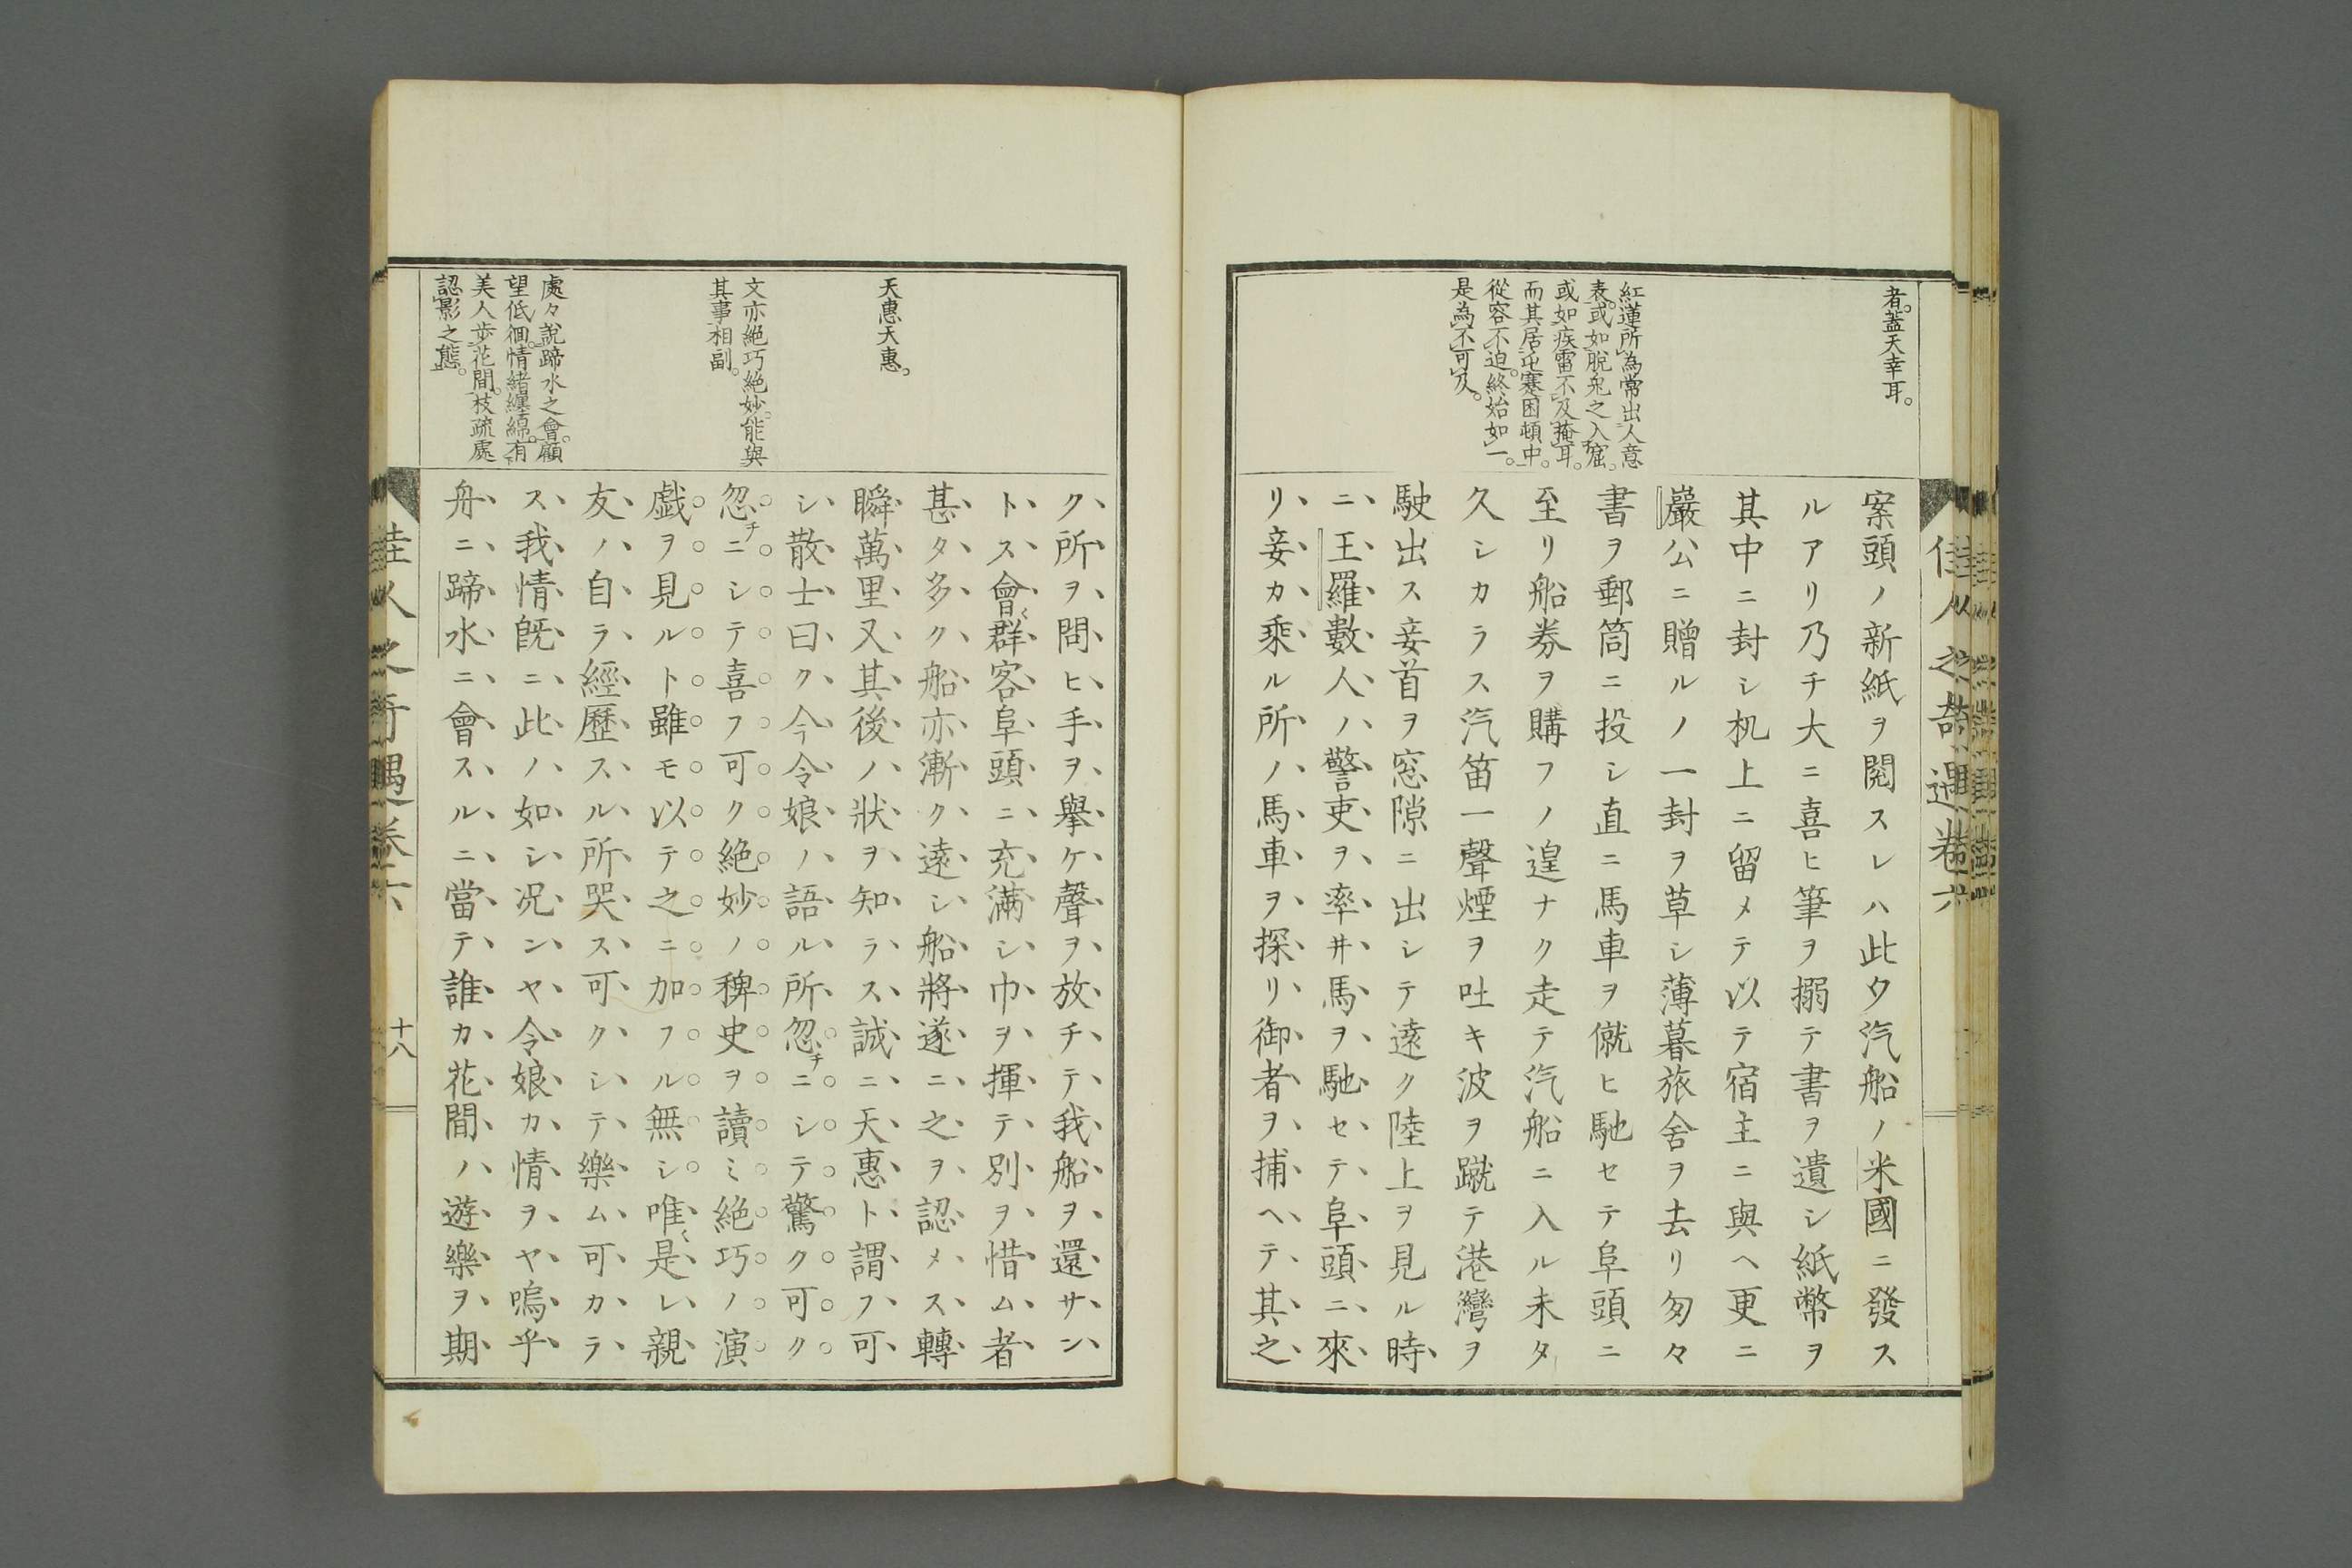 者。蓋天幸耳。
紅蓮所為常出人意
表。或如脫兔之入窟。
或如疾雷不及掩耳。
而其居屯蹇困頓中。
從容不迫。終始如一。
是為不可及。
案頭ノ新紙ヲ閱スレハ此夕汽船ノ米國ニ發ス
ルアリ乃チ大ニ喜ヒ筆ヲ搦テ書ヲ遺シ紙幣ヲ
其中ニ封シ机上ニ留メテ以テ宿主ニ與ヘ更ニ
巖公ニ贈ルノ一封ヲ草シ薄暮旅舍ヲ去リ匆々
書ヲ郵筒ニ投シ直ニ馬車ヲ僦ヒ馳セテ阜頭ニ
至リ船券ヲ購フノ遑ナク走テ汽船ニ入ル未タ
久シカラス汽笛一聲煙ヲ吐キ波ヲ蹴テ港灣ヲ
駛出ス妾首ヲ窓隙ニ出シテ遠ク陸上ヲ見ル時
ニ王羅數人ノ警吏ヲ率井馬ヲ馳セテ阜頭ニ來
リ妾カ乘ル所ノ馬車ヲ探リ御者ヲ捕ヘテ其之
佳人之奇遇卷六
天惠天惠。
文亦絕巧絕妙。能與
其事相副。
處々說蹄水之會。顧
望低徊。情緒纏綿。有
美人步花間。枝疏處
認影之態。
ク所ヲ問ヒ手ヲ擧ケ聲ヲ放チテ我船ヲ還サン
トス會〻群客阜頭ニ充滿シ巾ヲ揮テ別ヲ惜ム者
甚タ多ク船亦漸ク遠シ船將遂ニ之ヲ認メス轉
瞬萬里又其後ノ狀ヲ知ラス誠ニ天惠ト謂フ可
シ散士曰ク今令娘ノ語ル所忽チニシテ驚ク可ク
忽チニシテ喜フ可ク絕妙ノ稗史ヲ讀ミ絕巧ノ演
戯ヲ見ルト雖モ以テ之ニ加フル無シ唯〻是レ親
友ノ自ラ經歷スル所哭ス可クシテ樂ム可カラ
ス我情既ニ此ノ如シ况ンヤ令娘カ情ヲヤ嗚乎
舟ニ蹄水ニ會スルニ當テ誰カ花間ノ遊樂ヲ期
佳人之奇遇卷六
十八